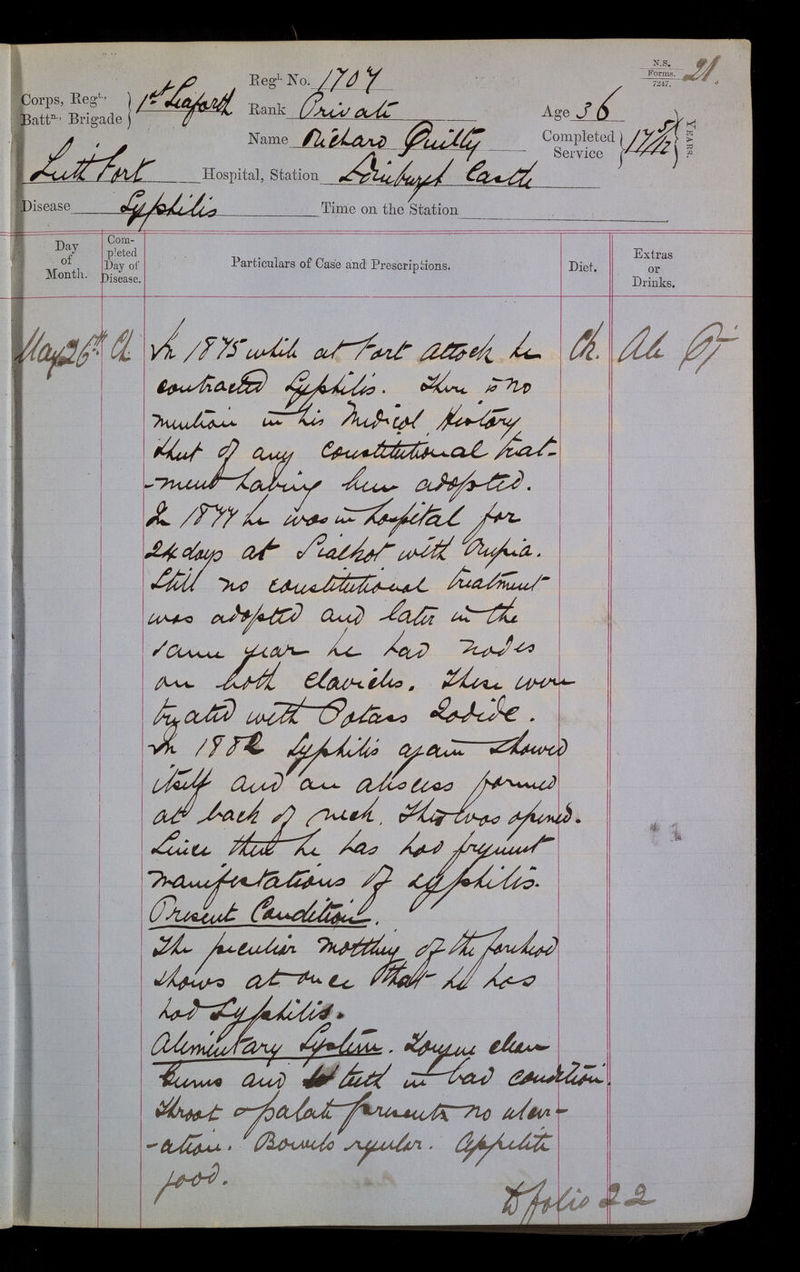 N.S. Forms. 7247. 21.
Corps, Regt., Battn., Brigade } 1st Seaforth
Regl. No. 1707
Rank Private
Age 36
Name Richard Quilty
Completed Service } 17 5/12 } YEARS.
Leith Fort Hospital, Station Edinburgh Castle
Disease Syphilis Time on the Station
Day of Month. Completed Day of Disease. Particulars of Case and Prescriptions. Diet. Extras or Drinks.
May 26th Ch. In 1875 while at Fort Attock he Ch. Ale Oj
contracted Syphilis. There is no
mention in his Medical History
Shut of any constitutional treat-
-ment having been adopted.
In 1877 he was in hospital for
24 days at Sialkot with Rupia.
Still no constitutional treatment
was adopted and later in the
same year he had nodes
on both clavicles. These were
treated with Potass Iodide.
In 1882 Syphilis again showed
itself and an abscess formed
at back of neck. This was opened.
Since then he has had frequent
manifestations of syphilis.
Present Condition.
The peculiar mottling of the forehead
shows at once that he has
had Syphilis.
Alimentary System. Tongue clean
Gums and teeth in bad condition.
Throat & palate presents no ulcer-
-ation. Bowels regular. Appetite
good.
To folio 22